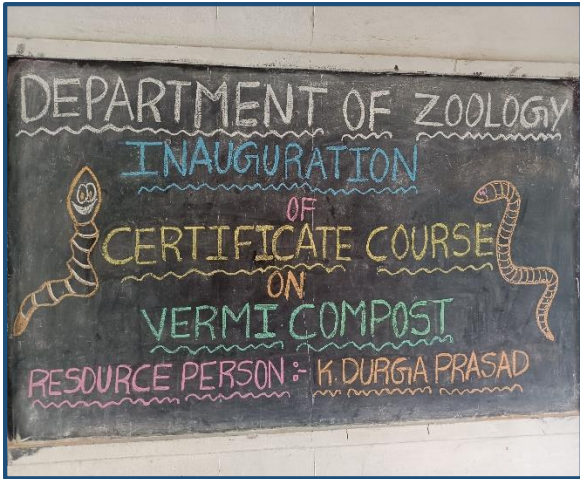 DEPARTMENT OF ZOOLOGY
INAUGURATION
OF
CERTIFICATE COURSE
ON
VERMI COMPOST
RESOURCE PERSON :- K. DURGA PRASAD